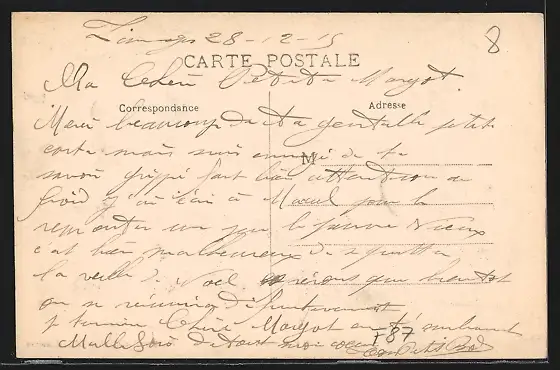 Limoges 28-12-15
8
CARTE POSTALE
Ma Chère Petite Margot
Correspondance
Adresse
Merci beaucoup de ta gentille petite
carte mais suis ennuyé de te
M
savoir grippé fait bien attention au
froid j'ai écri à Marcel pour le
remonter un peu le pauvre Vieux
c'est bien malheureux de
la veille de Noël espérons que bientot
on se réunira définitivement
je termine Chère Margot en t'embrassant
Mille fois de tout mon coeur
+87
Ton Petit